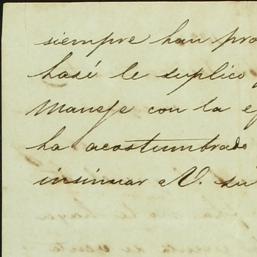 siempre han pro
hasé le suplico
Maneje con la ef
ha acostumbrado
insinuar a V. su